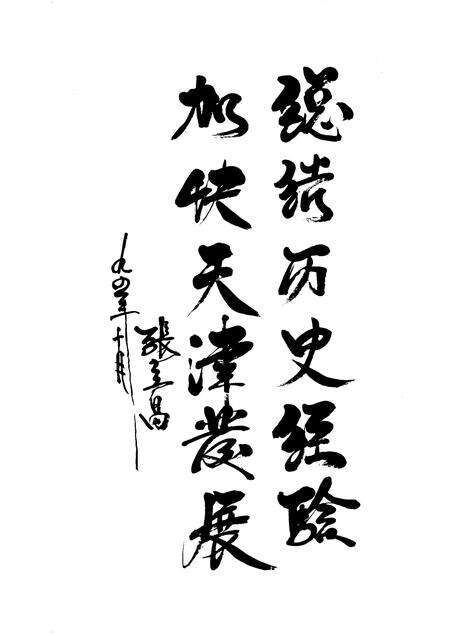 總结历史经验
加快天津發展
張立昌
九四年十月